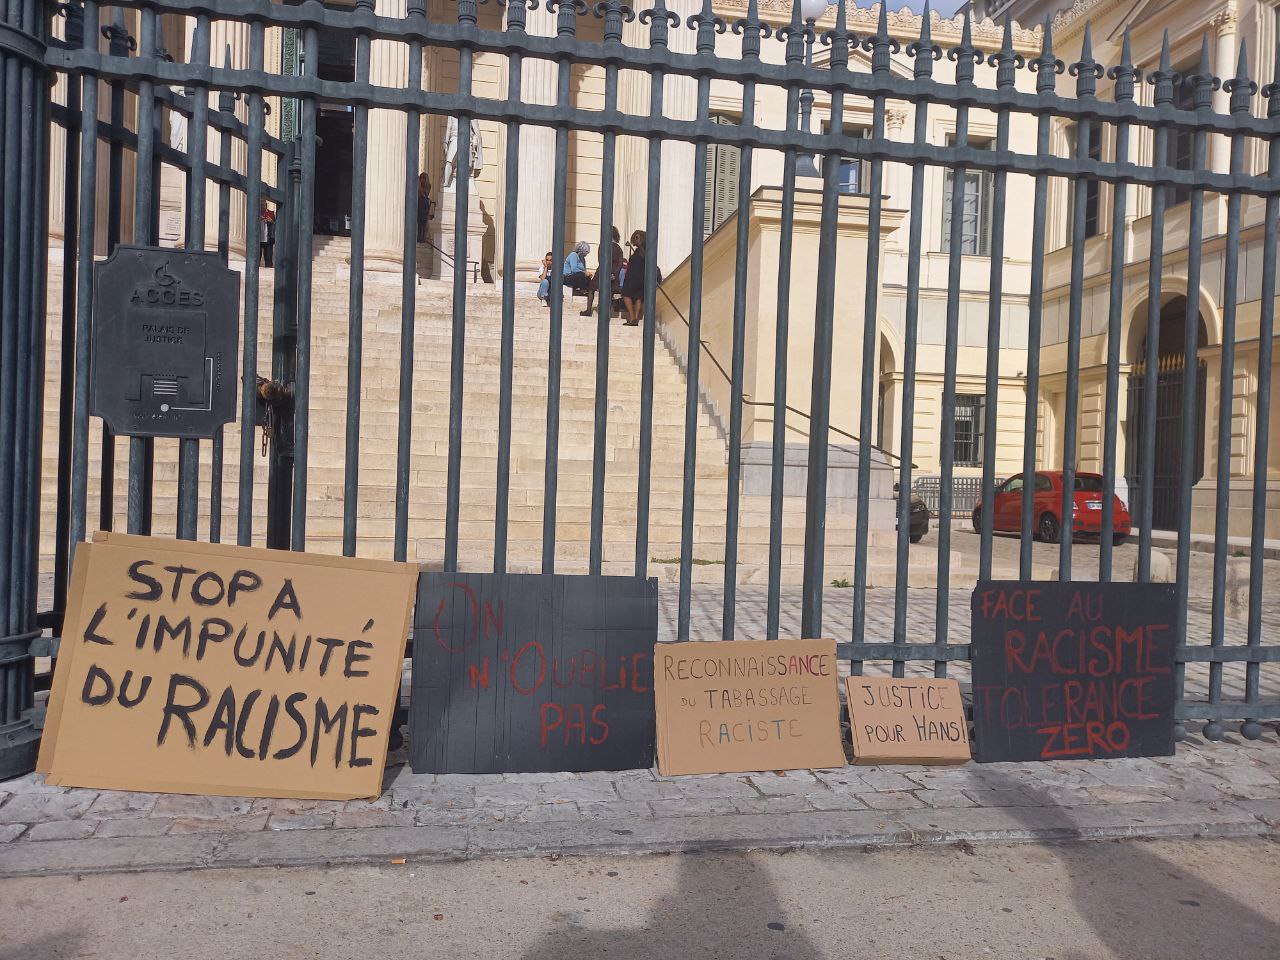 ACCES
PALAIS DE
JUSTICE
STOP A
L'IMPUNITÉ
DU RACISME
ON
N'OUBLIE
PAS
RECONNAISSANCE
DU TABASSAGE
RACISTE
JUSTICE
POUR HANS!
FACE AU
RACISME
TOLERANCE
ZERO